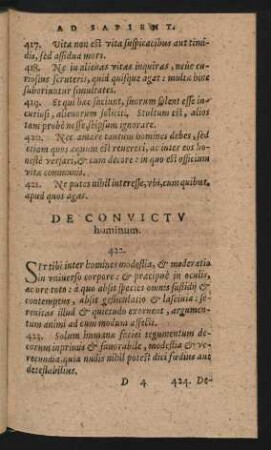 AD SAPIENT.
417. Vita non est vita suspicacibus aut timi-
dis, sed assidua mors.
418. Ne in alienas vitas inquiras, neue cu-
riosius scruteris, quid quisque agat: multæ hinc
suboriuntur simultates.
419. Et qui hæc faciunt, suorum solent esse in-
curiosi, alienorum soliciti. Stultum est, alios
tam probè nosse, seipsum ignorare.
420. Nec amare tantum homines debes, sed
etiam quos æquum est reuereri, ac inter eos ho-
nestè versari, & cum decore: in quo est officium
vitæ communis.
421. Ne putes nihil interesse, vbi, cum quibus,
apud quos agas.
DE CONVICTV
hominum.
422.
SIt tibi inter homines modestia, & moderatio
in vniuerso corpore: & præcipuè in oculis,
ac ore toto: à quo absit species omnis fastidij &
contemptus, absit gesticulatio & lasciuia: se-
renitas illud & quietudo exornent, argumen-
tum animi ad eum modum affecti.
423. Solum humanæ faciei tegumentum de-
corum inprimis & fauorabile, modestia & ve-
recundia, quia nudis nihil potest dici fœdius aut
detestabilius.
D 4 424. De-